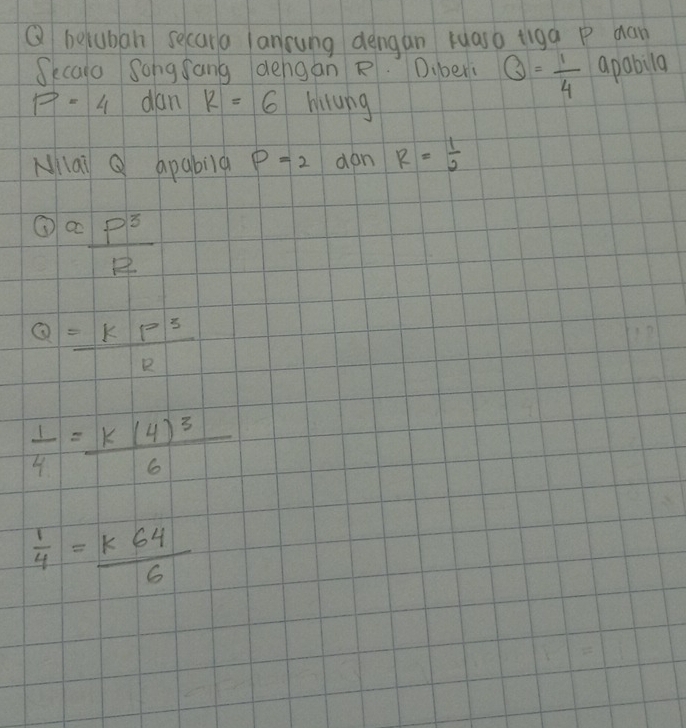 Q berubah secara lansung dengan kuasa tiga P dan
Secara Songsang dengan R. Diberi Q = 1/4 apabila
P = 4 dan R = 6 hitung
Nilai Q apabila P = 2 dan R = 1/2
Q ∝ P³/R
Q = K P³/R
1/4 = K (4)³/6
1/4 = K 64/6